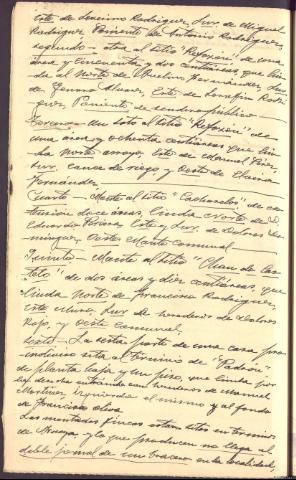 Este de Senerino Rodriguez, Sur de Miguel
Rodriguez Poniente de Antonio Rodriguez,
segundo - otra al sitio "Refoxin" de una
area y cincuenta y dos centiareas que lin-
da al Norte de Fernández, Sur
de Alvarez, Este de Serafin Rodri-
guez, Poniente de sendero público
Tercero - Un soto al sitio "Refoxin" de
una area y ochenta centiareas que lin-
da Norte arroyo, Este de Manuel
Sur cauce de riego y Oeste de
Fernández.
Cuarto - Monte al sitio "Cachoncelos" de ex-
tensión doce áreas, linda Norte de D.
Eduardo Este y Sur de Dolores Do-
minguez, Oeste Monte comunal
Quinto - Monte al sitio "Chan de Cas-
telo" de dos áreas y diez centiareas, que
linda Norte de Francisco Rodriguez,
Este Muro, Sur de herederos de Dolores
Rojo, y Oeste comunal.
Sexto - La sexta parte de una casa pro-
indiviso sita al términio de "Padrón"
de planta baja y un piso, que linda por
la derecha entrando con herederos de Manuel
Martinez izquierda el mismo y al fondo
de Francisco Oliva
Las montadas fincas estan sitas en término
de y lo que producen no llega al
doble jornal de un bracero en la localidad,